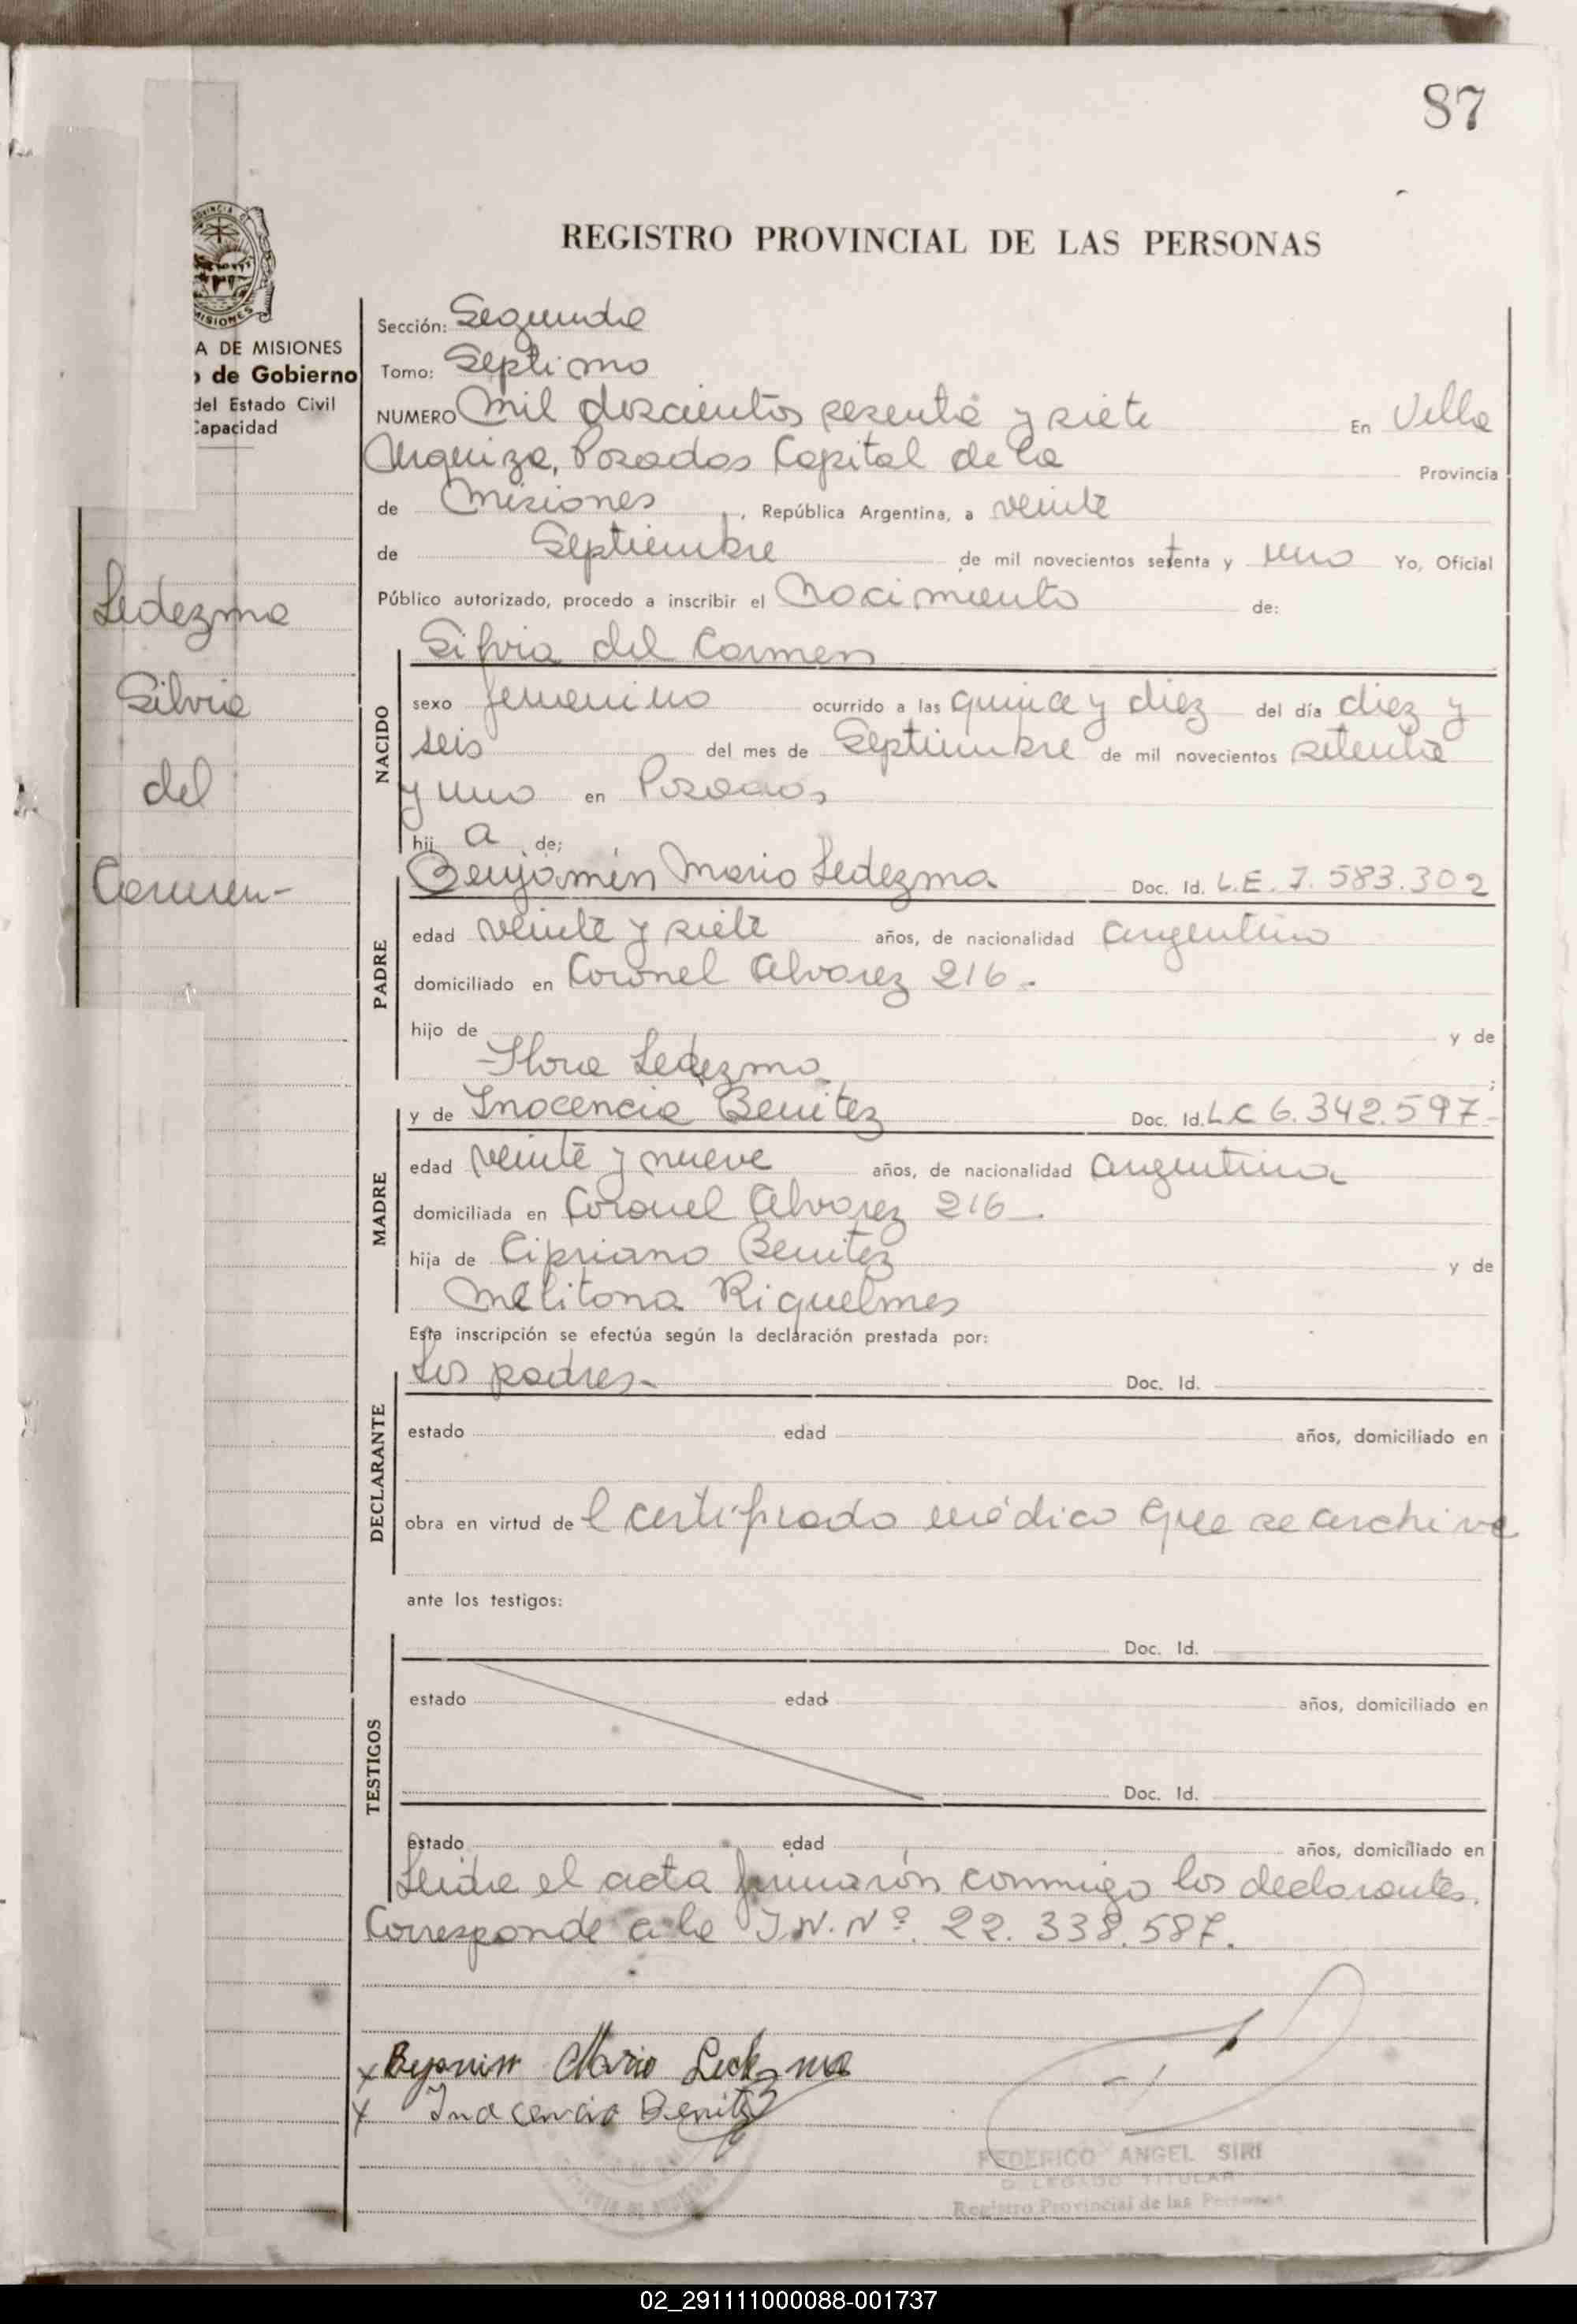 87
REGISTRO PROVINCIAL DE LAS PERSONAS
PROVINCIA DE
MISIONES
A DE MISIONES
o de Gobierno
del Estado Civil
Capacidad
Ledezma
Silvia
del
Carmen-
Sección: Segunda
Tomo: Septimo
NUMERO Mil doscientos sesenta y siete En Villa
Urquiza, Posadas Capital de la Provincia
de Misiones, República Argentina, a veinte
de Septiembre de mil novecientos setenta y uno Yo, Oficial
Público autorizado, procedo a inscribir el Nacimiento de:
NACIDO
Silvia del Carmen
sexo femenino ocurrido a las quince y diez del día diez y
seis del mes de Septiembre de mil novecientos setenta
y uno en Posadas
hij a de;
PADRE
Benjamín Mario Ledezma Doc. Id. L.E. 7.583.302
edad veinte y siete años, de nacionalidad argentino
domiciliado en Coronel Alvarez 216.
hijo de y de
Flora Ledezma ;
MADRE
y de Inocencia Benitez Doc. Id. LC 6.342.597-
edad veinte y nueve años, de nacionalidad argentina
domiciliada en Coronel Alvarez 216.
hija de Cipriano Benitez y de
Melitona Riquelmes
Esta inscripción se efectúa según la declaración prestada por:
DECLARANTE
Los padres- Doc. Id.
estado edad años, domiciliado en
obra en virtud de l certificado médico que se archiva
ante los testigos:
TESTIGOS
Doc. Id.
estado edad años, domiciliado en
Doc. Id.
estado edad años, domiciliado en
Leída el acta firmarón conmigo los declarantes.
Corresponde a la I.N. Nº. 22.338.587.
x Bejamin Mario Ledezma
x Inocencia Benitez
FEDERICO ANGEL SIRI
DELEGADO TITULAR
Registro Provincial de las Personas
02_291111000088-001737